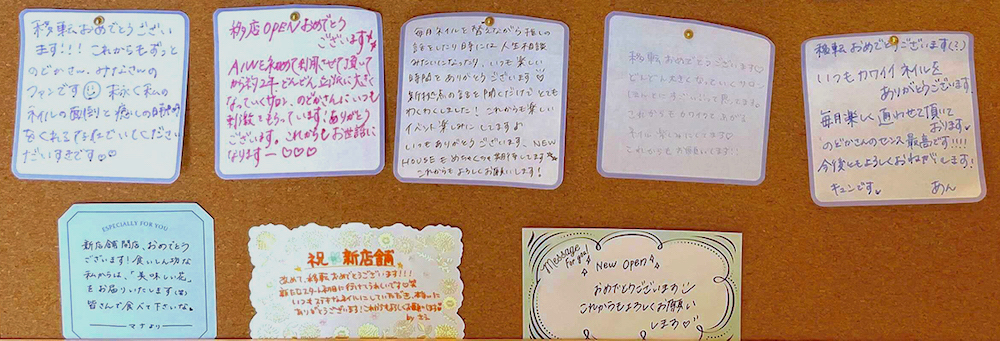 移転おめでとうござい
ます!!! これからもずっと
のどかさん、みなさんの
ファンです☺ 末永く私の
ネイルの面倒と癒しの時間
をくれる
だいすきです♡♡
移店OPENおめでとう
ございます
AILUを初めて利用させて頂いて
から約2年どんどん立派に大きく
なっていくサロン、のどかさんにいつも
刺激をもらっています!ありがとう
ございます。これからもお世話に
なりますー♡♡♡
毎月ネイルを替えながら推しの
話をしたり時には人生相談
みたいになったり、いつも楽しい
時間をありがとうございます♡
新拠点の話を聞くだけでとても
わくわくしました!これからも楽しい
イベント楽しみにしてます♪
いつもありがとうございます。NEW
HOUSEもめちゃくちゃ期待してます
これからもよろしくお願いします!
移転おめでとうございます♡
どんどん大きくなっていくサロン
これからもカワイくてあがる
ネイル楽しみにしてます♡
これからもお願いします!!
移転おめでとうございます(ミ)
いつもカワイイネイルを
ありがとうございます
毎月楽しく通わせて頂いて
おります。
のどかさんのセンス最高です!!!!
今後ともよろしくおねがいします!
キュンです。 あん
ESPECIALLY FOR YOU
新店舗開店、おめでとう
ございます!食いしん坊な
私からは、「美味しい花」
をお届けいたします(笑)
皆さんで食べて下さいな。
マナより
祝 新店舗
改めて、移転おめでとうございます!!!
新たなスタート初日に行けてうれしいです♡
いつもステキなネイルにしていただき、本当に
ありがとうございます!これからもよろしくお願いします
by さえ
Message
For you!
New Open
おめでとうございます
これからもよろしくお願い
します♡